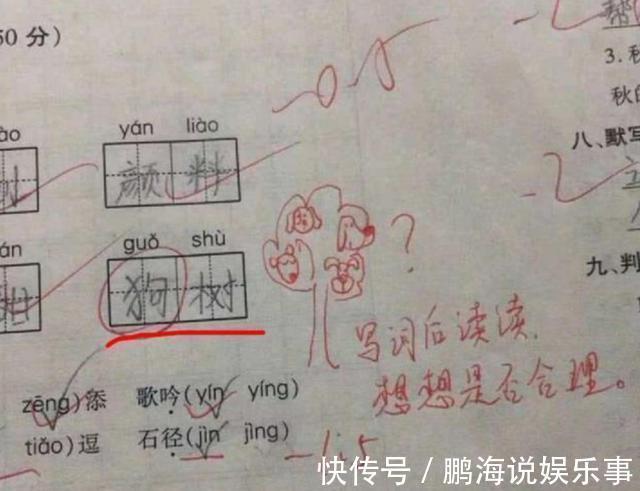 50分)
yán liào
颜料
-0.5
guǒ shù
狗树
?
写词后读读,
想想是否合理。
zēng)添 歌吟(yín yíng)
tiǎo)逗 石径(jìn jìng)
-1.5
3.秋
秋的
八、默写
九、判
快传号/鹏海说娱乐事